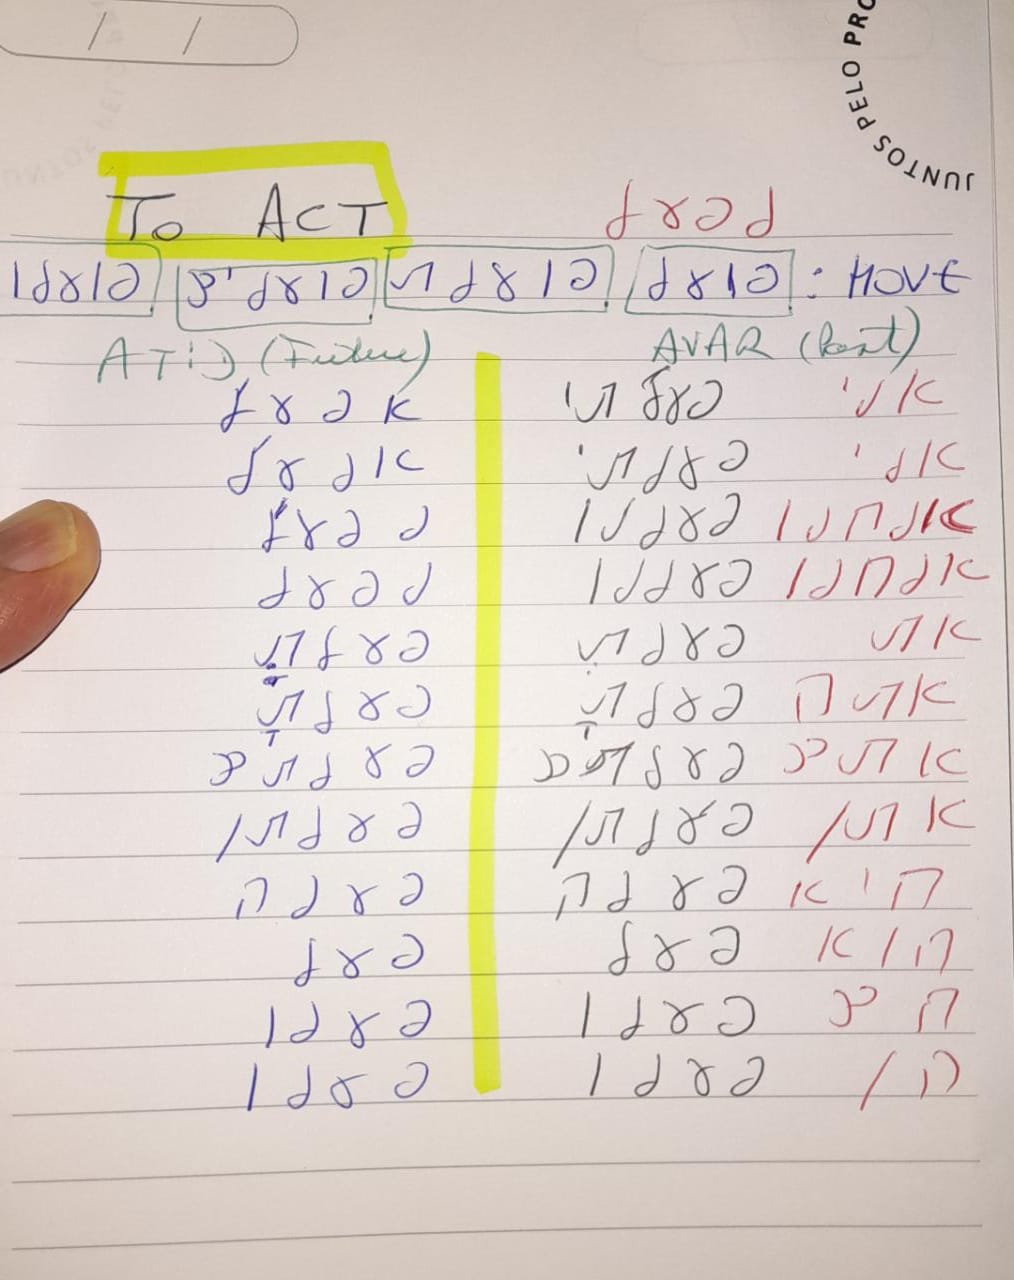 / /
JUNTOS PELO PRO
TO ACT לפעל
HOVE: פועל פועלת פועלים פועלו
AVAR (Past) ATID (Future)
אני פעלתי אפעל
אני פעלתי אפעל
אנחנו פעלנו נפעל
אנחנו פעלנו נפעל
את פעלת פעלת
אתה פעלת פעלת
אתם פעלתם פעלתם
אתן פעלתן פעלתן
היא פעלה פעלה
הוא פעל פעל
הם פעלו פעלו
הן פעלו פעלו